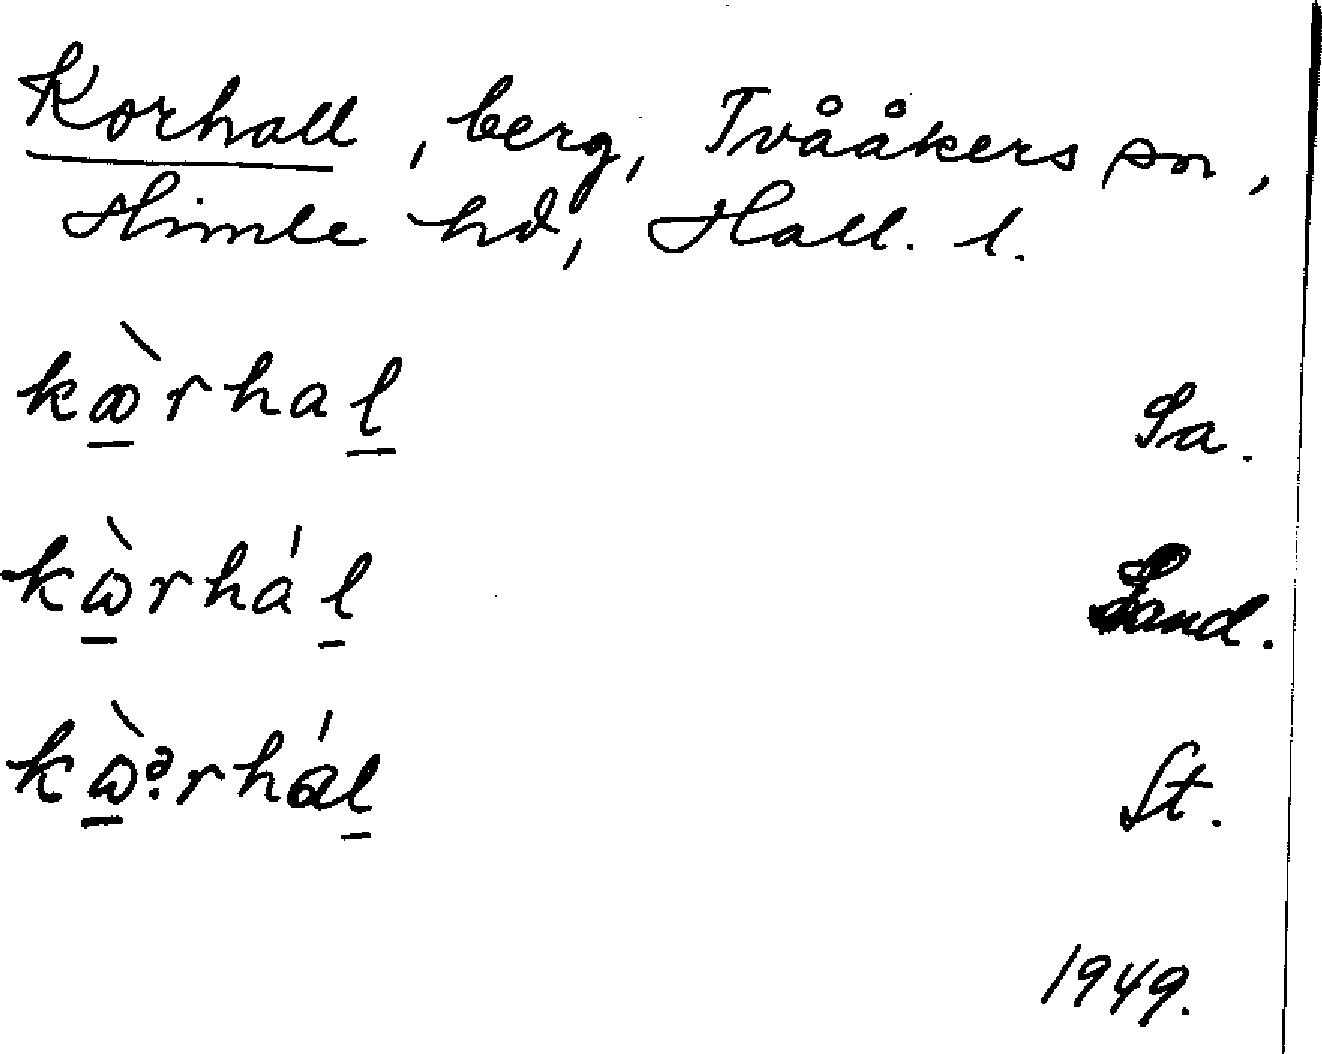 Korhall, berg, Tvååkers sn,
Himle hd, Hall. l.
kꝏ̀rhal Sa.
kὼrhál Sand.
kὼərhál St.
1949.